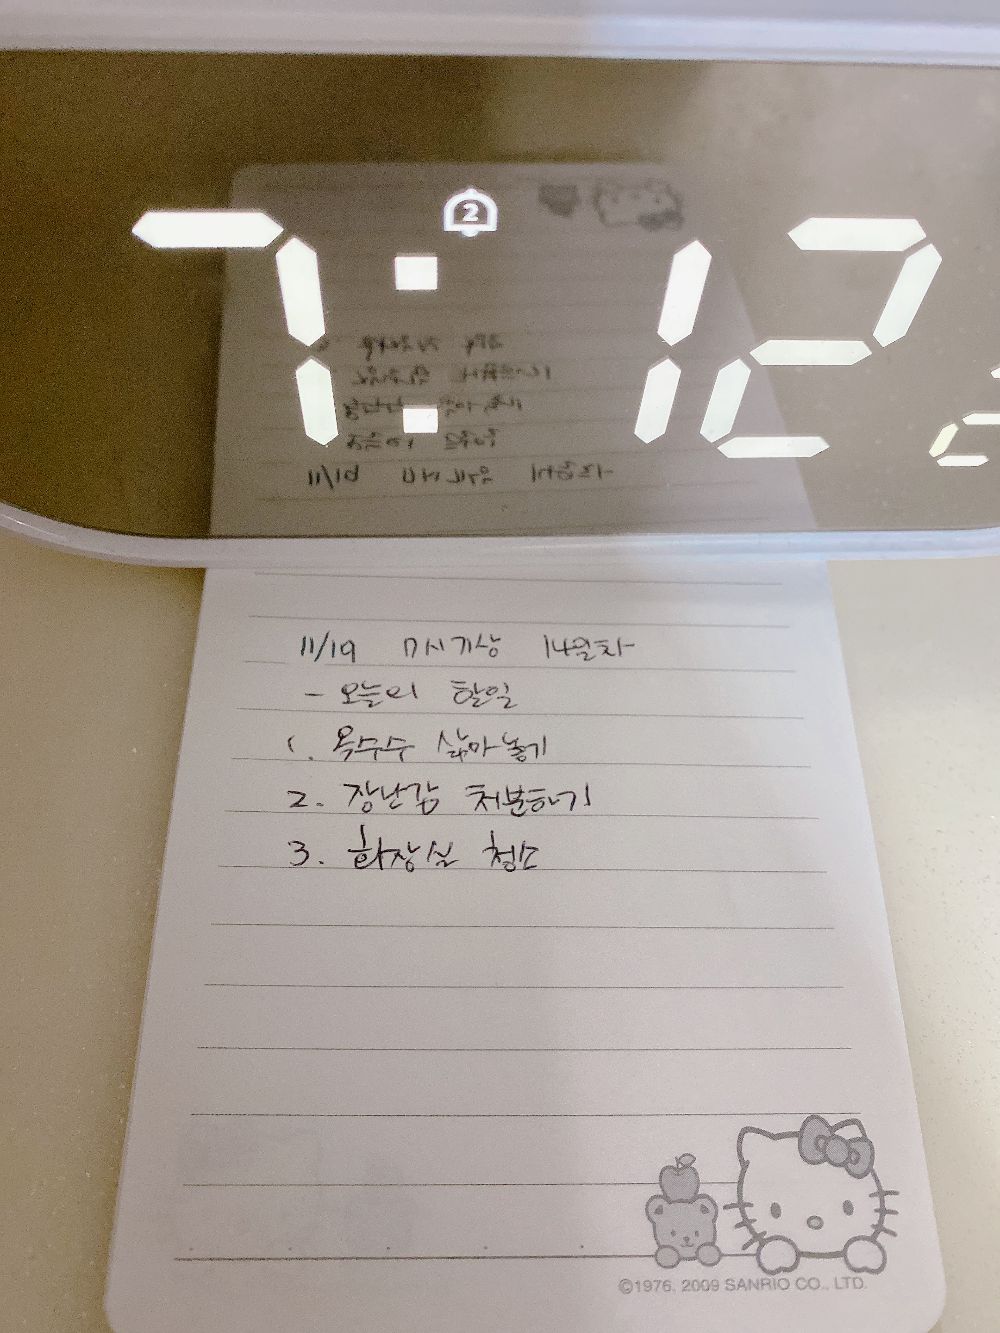 2
7:12
11/19 7시기상 14일차
- 오늘의 할일
1. 옥수수 삶아놓기
2. 장난감 처분하기
3. 화장실 청소
©1976, 2009 SANRIO CO., LTD.